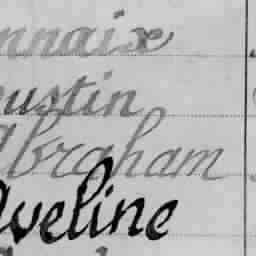 nnaix
ustin
Abraham
Aveline